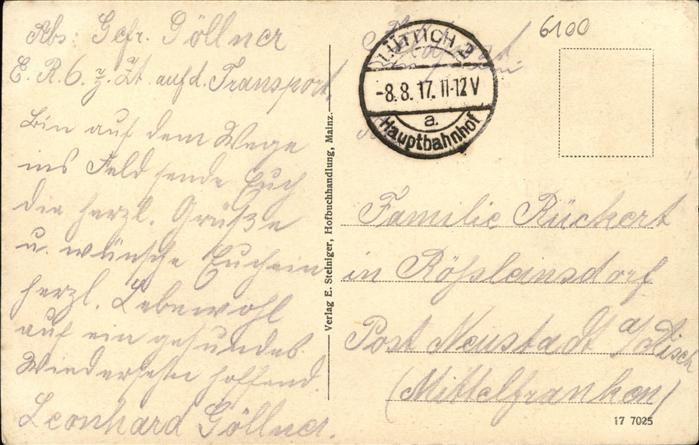 Abs: Gefr. Göllner
E. R. 6. z. Zt. auf d. Transport
Bin auf dem Wege
ins Feld sende Euch
die herzl. Grüße
u. wünsche Euch ein
herzl. Lebewohl
auf ein gesundes
Wiedersehn hoffend.
Leonhard Göllner.
Verlag E. Steiniger, Hofbuchhandlung, Mainz.
6100
LÜTTICH 2
-8.8.17. 11-12V
a.
Hauptbahnhof
Familie Rückert
in Rößleinsdorf
Post Neustadt a/Aisch
(Mittelfranken)
17 7025